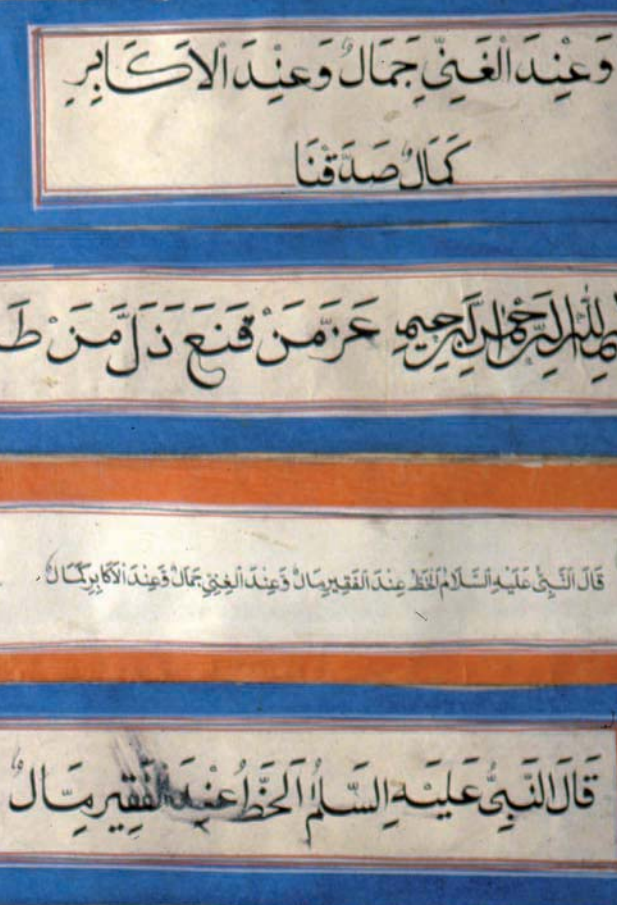 وَعِنْدَ الْغَنِيِّ جَمَالٌ وَعِنْدَ الْاَكَابِرِ
كَمَالٌ صَدَقْنَا
بسم اللّٰه الرَّحْمٰنِ الرَّحِيمِ عَزَّ مَنْ قَنَعَ ذَلَّ مَنْ طَ
قَالَ النَّبِىُّ عَلَيْهِ السَّلَامُ الْخَطُّ عِنْدَ الْفَقِيرِ مَالٌ وَعِنْدَ الْغَنِيِّ جَمَالٌ وَعِنْدَ الْاَكَابِرِ كَمَالٌ
قَالَ النَّبِىُّ عَلَيْهِ السَّلٰمُ اَلْخَطُّ عِنْدَ الْفَقِيرِ مَالٌ